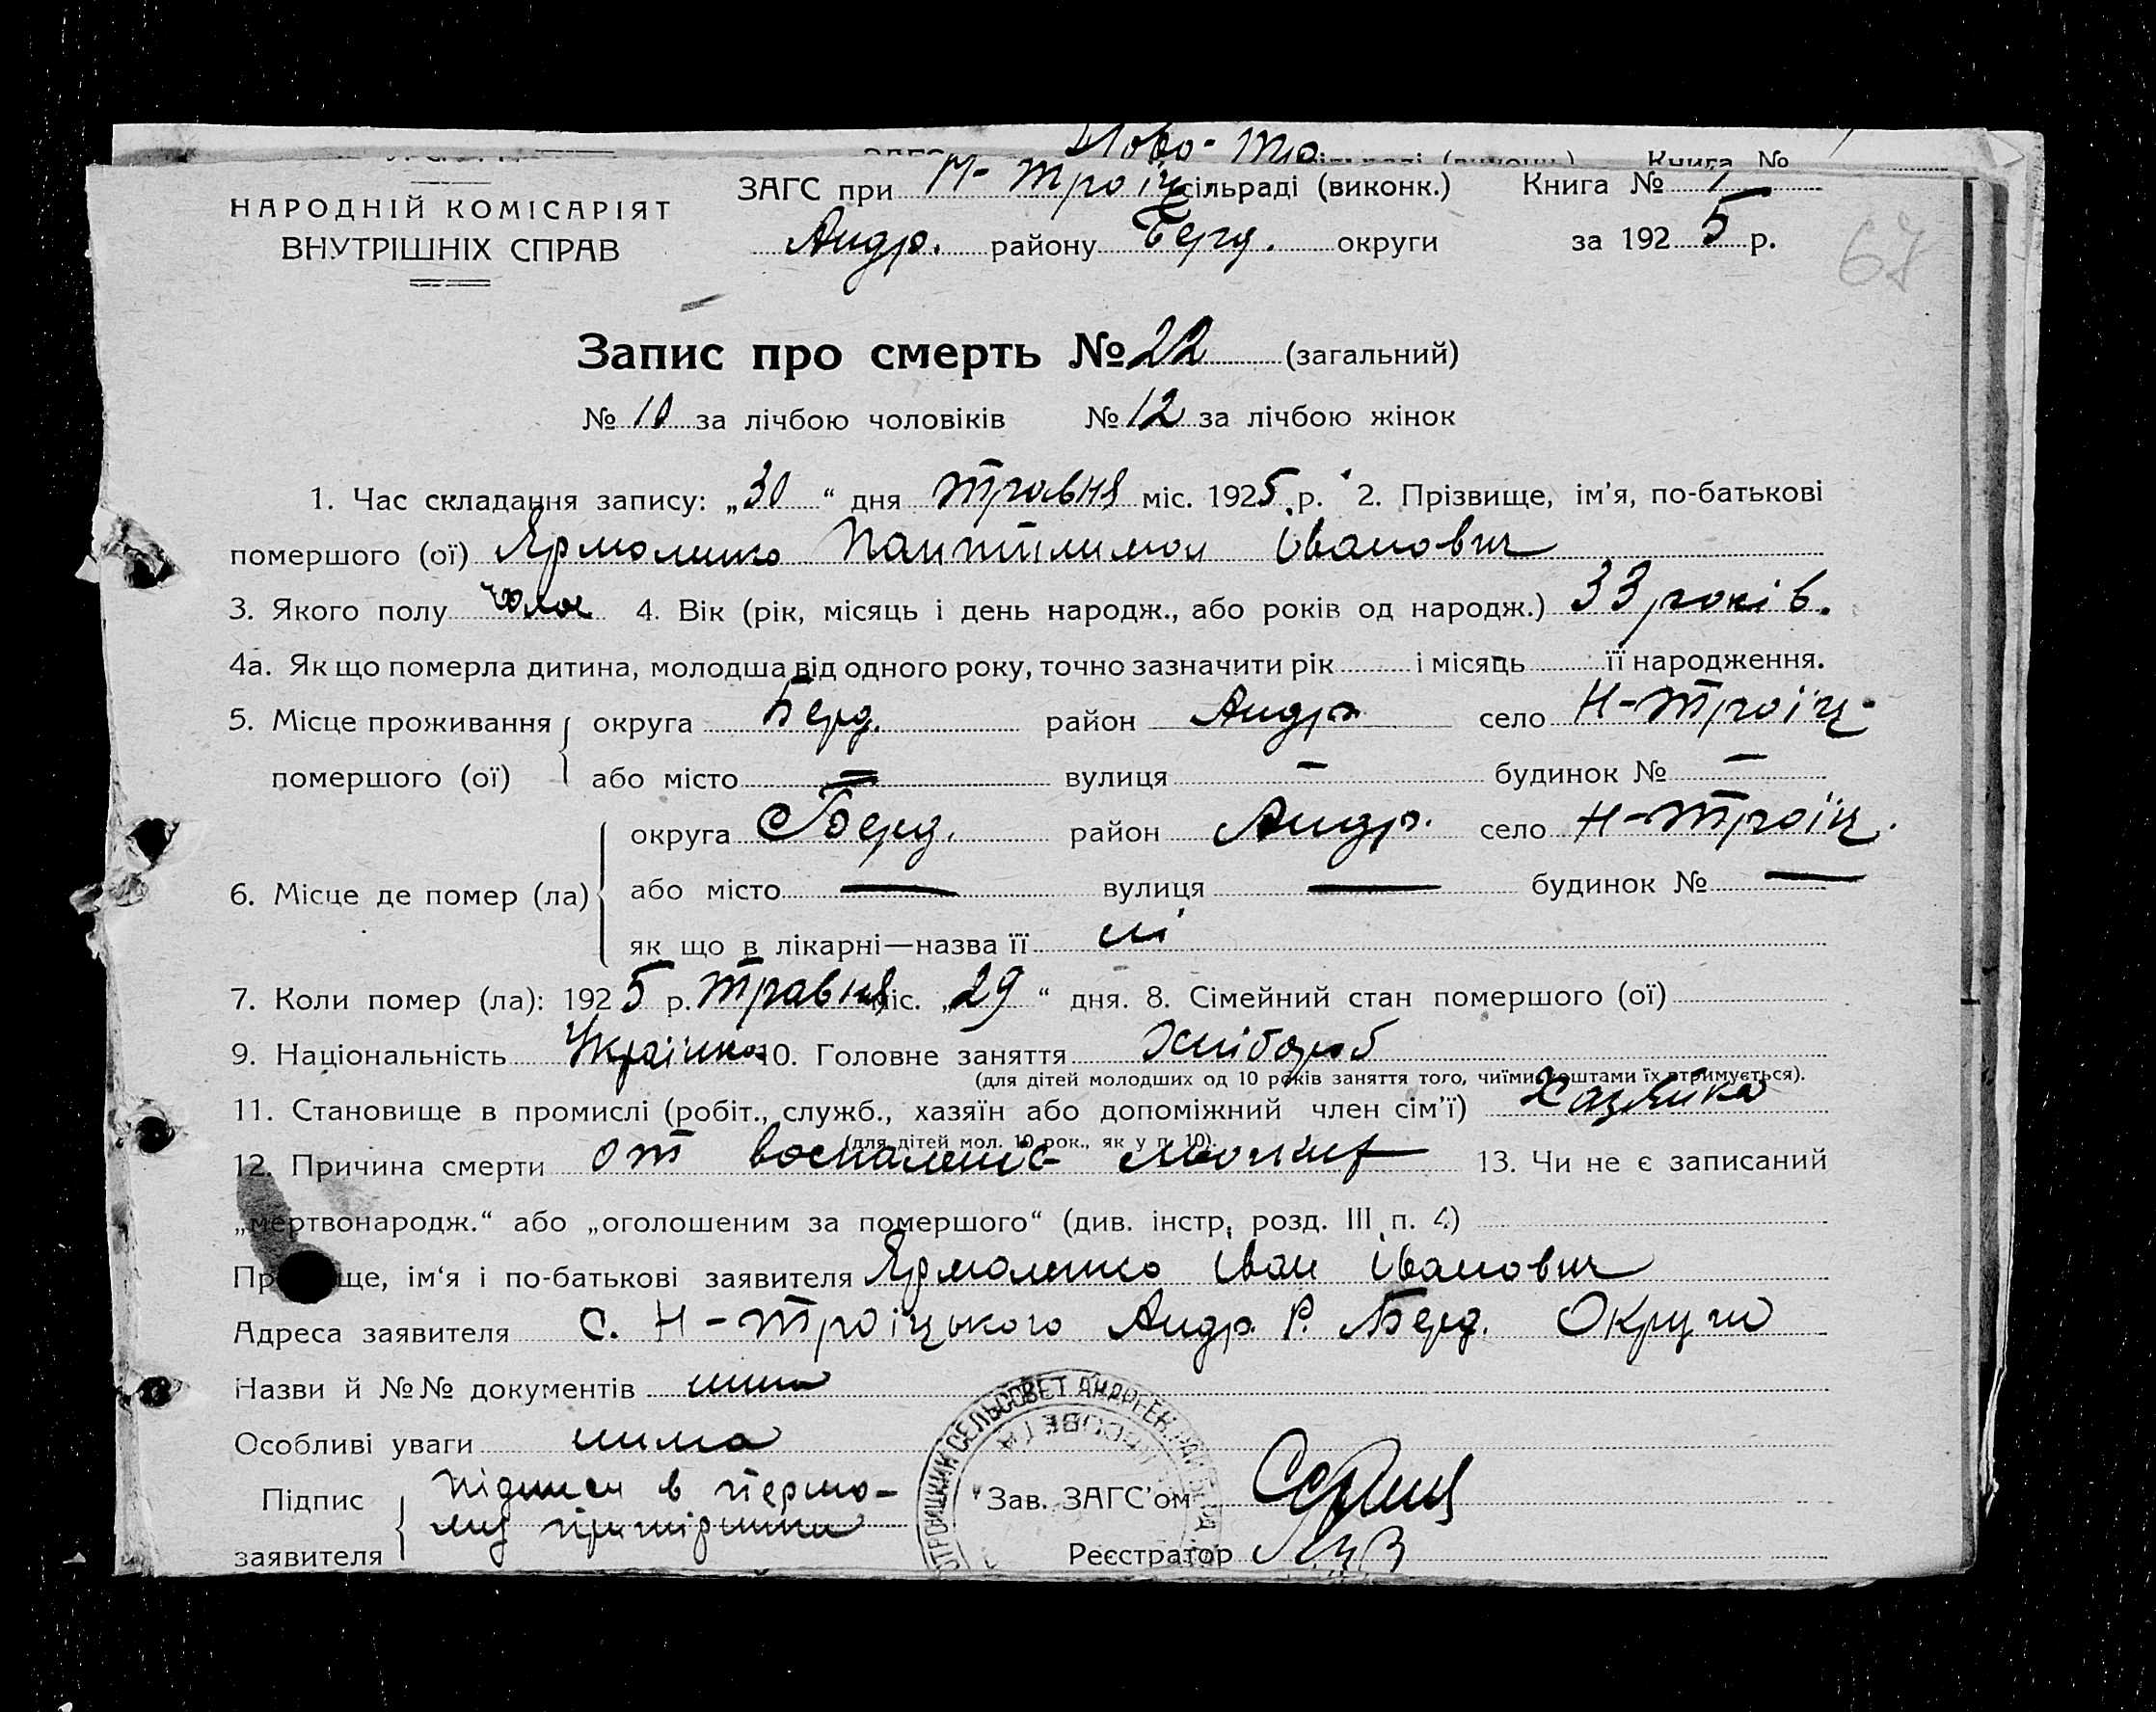 Ново-Тро
Книга №
ЗАГС при Н-Троїц. сільраді (виконк.) Книга № 1
НАРОДНІЙ КОМІСАРІЯТ
ВНУТРІШНІХ СПРАВ
Андр. району Берд. округи за 1925 р.
67
Запис про смерть № 22 (загальний)
№ 10 за лічбою чоловіків № 12 за лічбою жінок
1. Час складання запису: „30“ дня травня міс. 1925 р. 2. Прізвище, ім’я, по-батькові
помершого (ої) Ярмоленко Пантилимон Іванович
3. Якого полу чолов 4. Вік (рік, місяць і день народж., або років од народж.) 33 років.
4а. Як що померла дитина, молодша від одного року, точно зазначити рік і місяць її народження.
5. Місце проживання округа Берд. район Андр. село Н-Троїц.
помершого (ої) або місто — вулиця — будинок № —
округа Берд. район Андр. село Н-Троїц.
6. Місце де помер (ла) або місто — вулиця — будинок № —
як що в лікарні—назва її ні
7. Коли помер (ла): 1925 р. травня міс. „29“ дня. 8. Сімейний стан помершого (ої)
9. Національність Українка 10. Головне заняття Хлібороб
(для дітей молодших од 10 років заняття того, чиїми коштами їх втримується).
11. Становище в промислі (робіт., служб., хазяїн або допоміжний член сім’ї) Хазяйка
(для дітей мол. 10 рок., як у п. 10).
12. Причина смерти от воспаление 13. Чи не є записаний
„мертвонародж.“ або „оголошеним за помершого“ (див. інстр. розд. III п. 4)
Пр ще, ім‘я і по-батькові заявителя Ярмоленко Іван Іванович
Адреса заявителя с. Н-Троїцького Андр. Р. Берд. Округи
Назви й №№ документів нима
Особливі уваги нима
ТРОИЦКИЙ СЕЛЬСОВЕТ АНДРЕЕН. РАЙ
Підпис підписи в первому примірнику Зав. ЗАГС’ом
заявителя Реєстратор